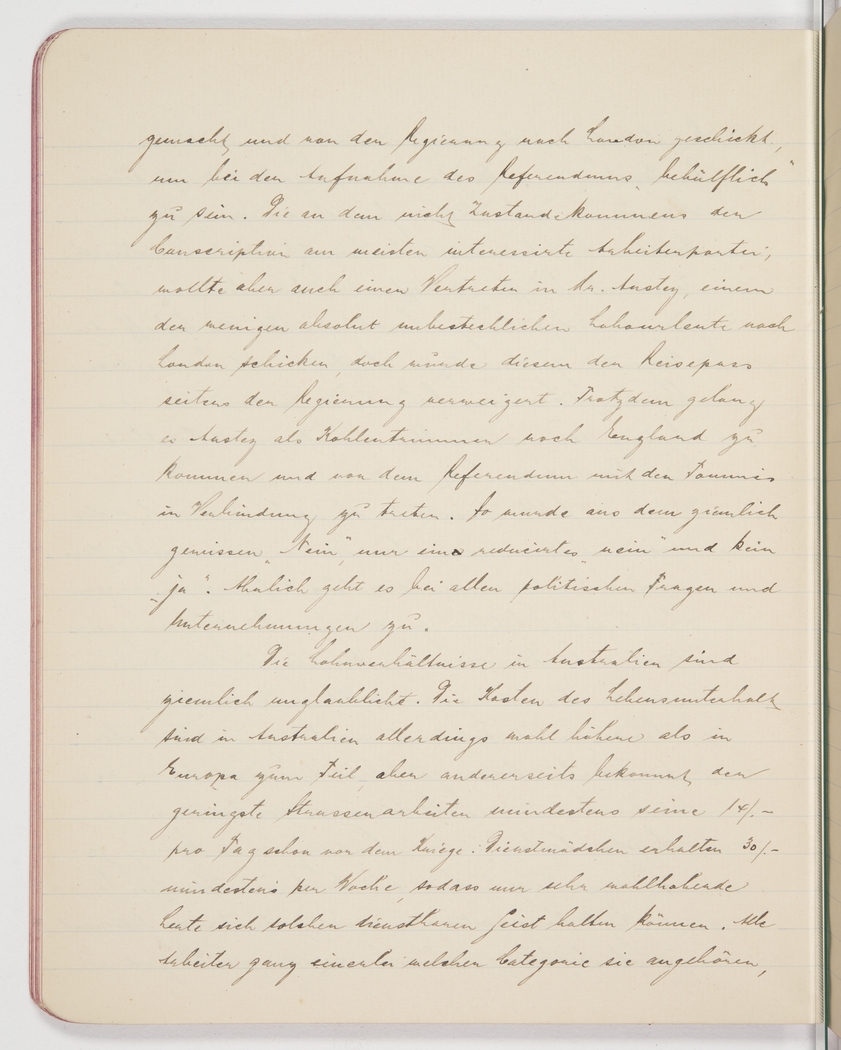 gemacht, und von der Regierung nach London geschickt,
um bei der Aufnahme des Referendums „behülflich"
zu sein. Die an dem nicht Zustandekommens der
Conscription am meisten interessirte Arbeiterpartei,
wollte aber auch einen Vertreter in Mr. Anstey, einem
der wenigen absolut unbestechlichen Labourleute nach
London schicken, doch wurde diesem der Reisepass
seitens der Regierung verweigert. Trotzdem gelang
es Anstey als Kohlentrimmer nach England zu
kommen und vor dem Referendum mit den Tommis
in Verbindung zu treten. So wurde aus dem ziemlich
gewissen „Nein", nur ein reducirtes „nein" und kein
„ja". Ähnlich geht es bei allen politischen Fragen und
Unternehmungen zu.
Die Lohnverhältnisse in Australien sind
ziemlich unglaublich. Die Kosten des Lebensunterhalt
sind in Australien allerdings wohl höhere als in
Europa zum Teil, aber andererseits bekommt der
geringste Strassenarbeiter mindestens seine 14/.-
pro Tag schon vor dem Kriege. Dienstmädchen erhalten 30/.-
mindestens per Woche, sodass nur sehr wohlhabende
Leute sich solchen dienstbaren Geist halten können. Alle
Arbeiter ganz einerlei welcher Categorie sie angehören,